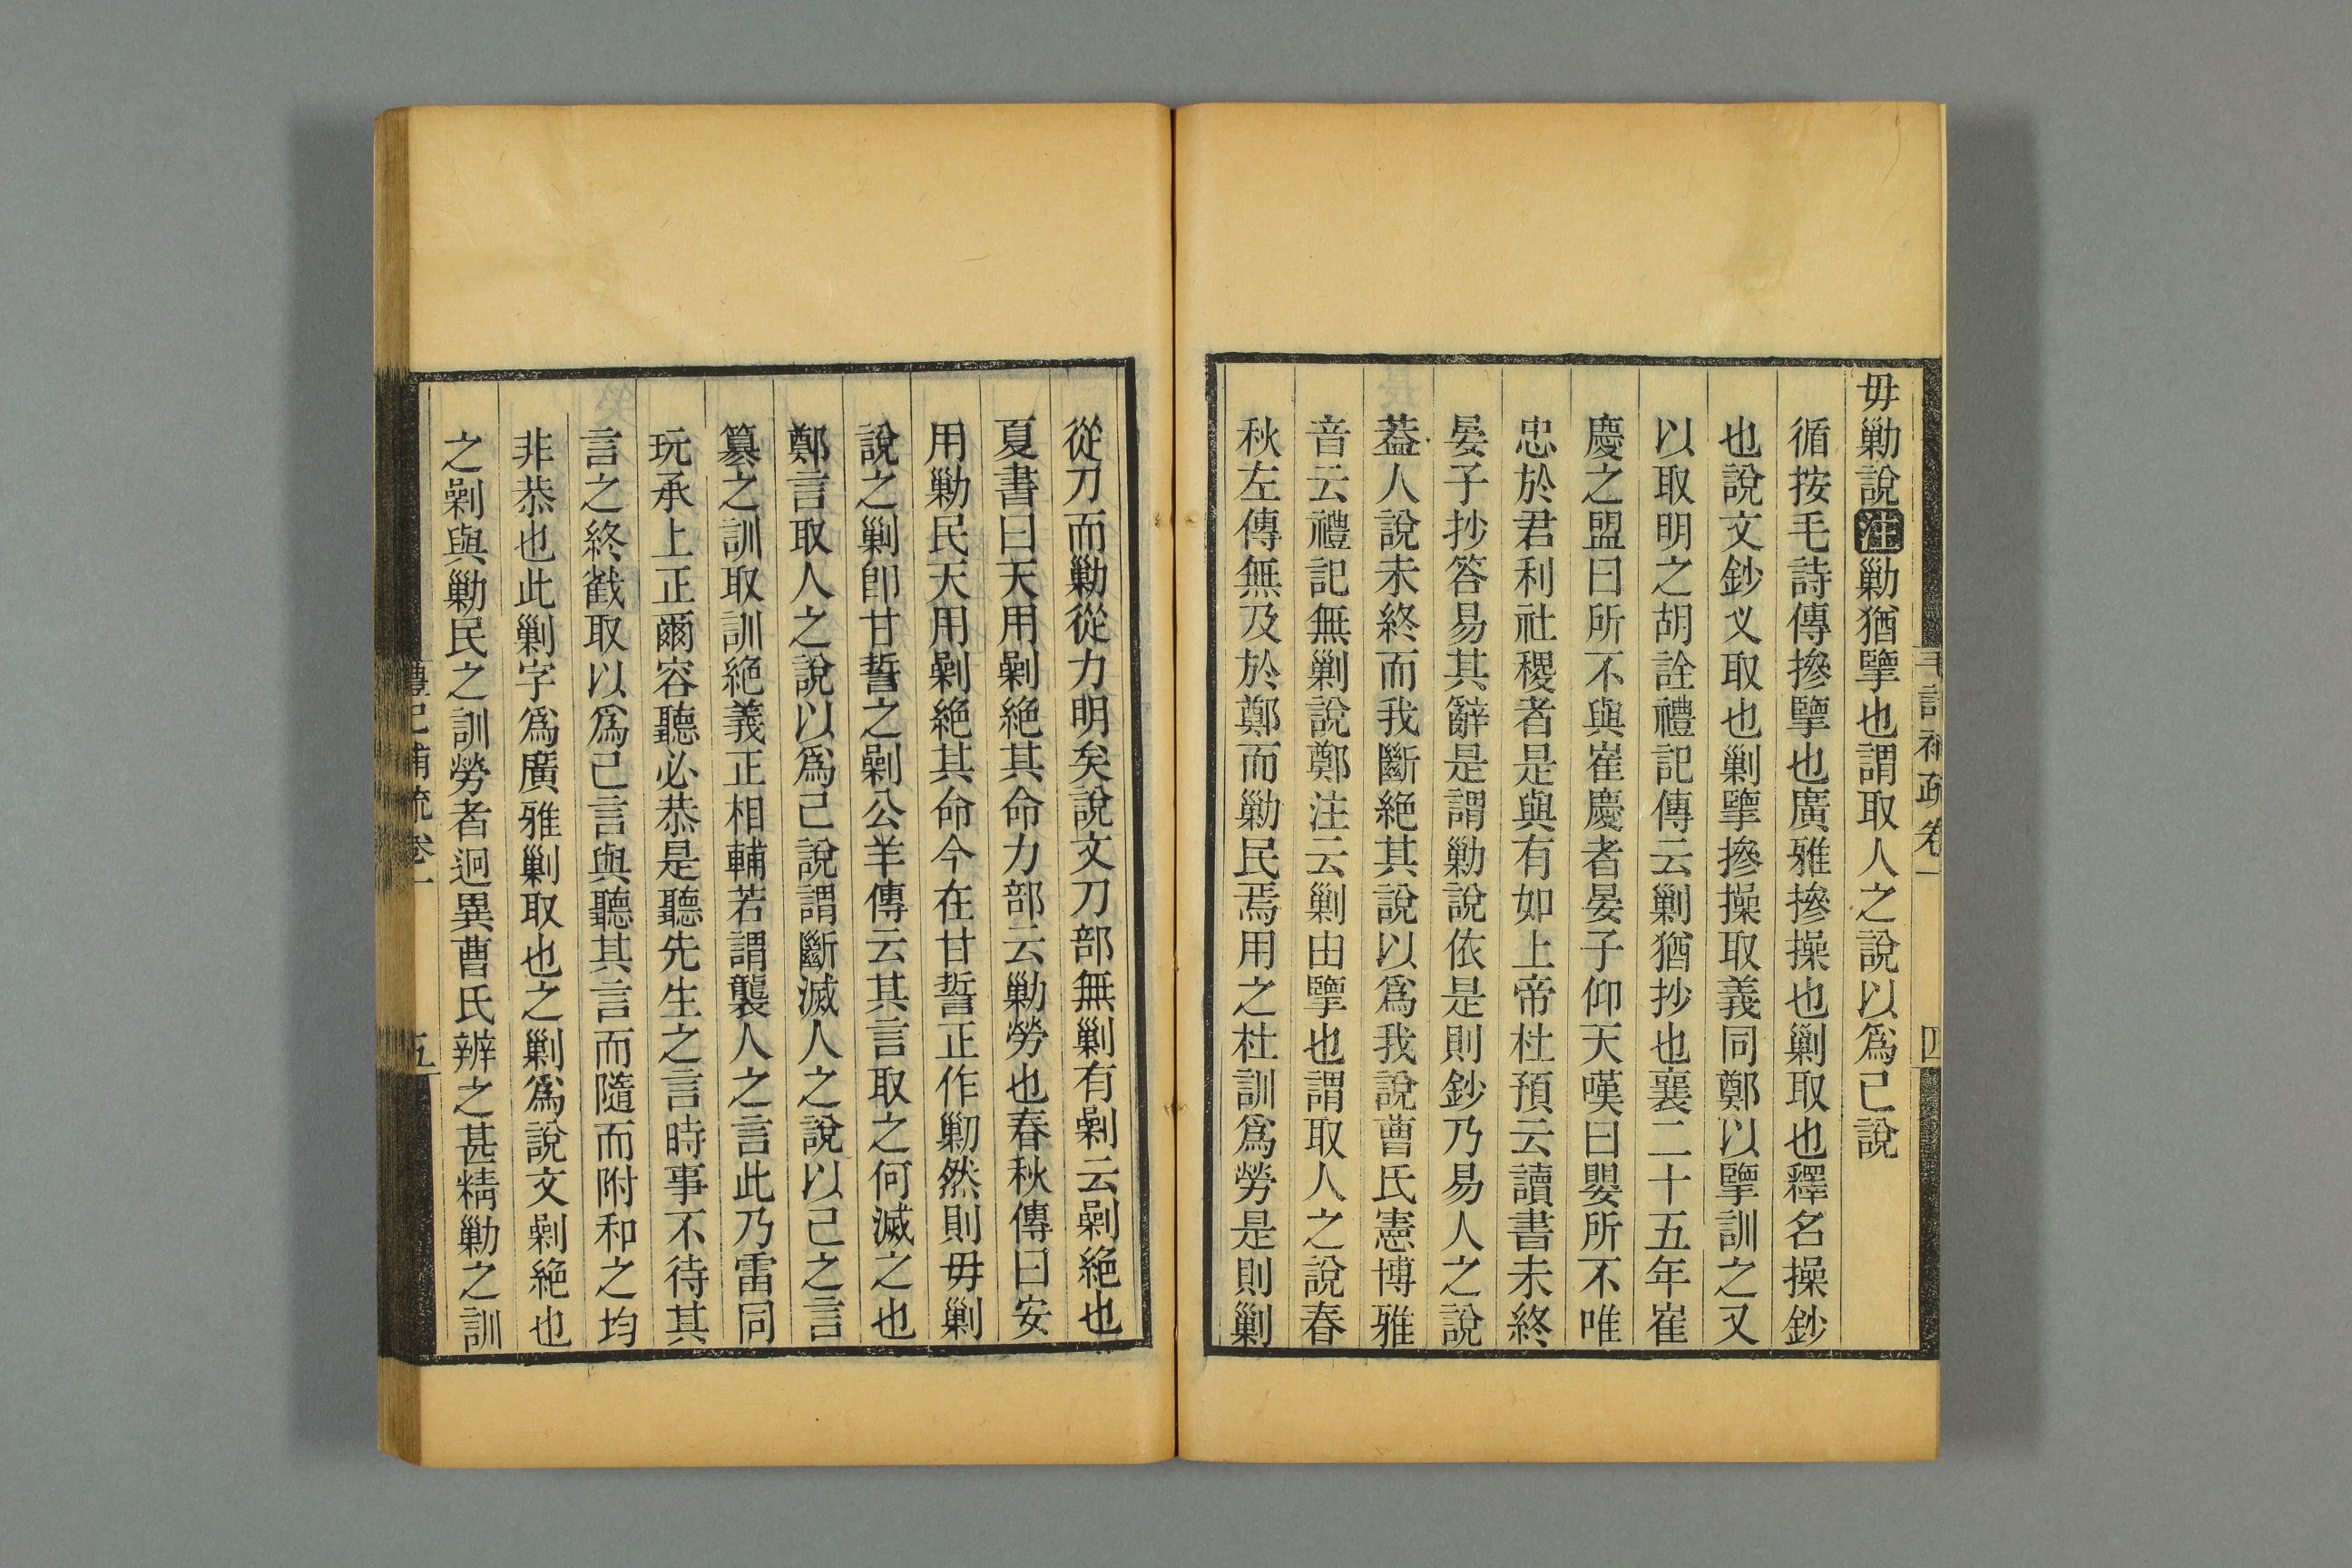 毛詩補疏卷一 四
毋勦說注勦猶擥也謂取人之說以爲己說
循按毛詩傳摻擥也廣雅摻操也剿取也釋名操鈔
也說文鈔叉取也剿擥摻操取義同鄭以擥訓之又
以取明之胡詮禮記傳云剿猶抄也襄二十五年崔
慶之盟曰所不與崔慶者晏子仰天嘆曰嬰所不唯
忠於君利社稷者是與有如上帝杜預云讀書未終
晏子抄答易其辭是謂勦說依是則鈔乃易人之說
葢人說未終而我斷絕其說以爲我說曹氏憲博雅
音云禮記無剿說鄭注云剿由擥也謂取人之說春
秋左傳無及於鄭而勦民焉用之杜訓爲勞是則剿
從刀而勦從力明矣說文刀部無剿有劋云劋絕也
夏書曰天用劋絕其命力部云勦勞也春秋傳曰安
用勦民天用劋絕其命今在甘誓正作剿然則毋剿
說之剿卽甘誓之劋公羊傳云其言取之何滅之也
鄭言取人之說以爲己說謂斷滅人之說以己之言
簒之訓取訓絕義正相輔若謂襲人之言此乃雷同
玩承上正爾容聽必恭是聽先生之言時事不待其
言之終截取以爲己言與聽其言而隨而附和之均
非恭也此剿字爲廣雅剿取也之剿爲說文劋絕也
之劋與勦民之訓勞者迥異曹氏辨之甚精勦之訓
禮記補疏卷一 五